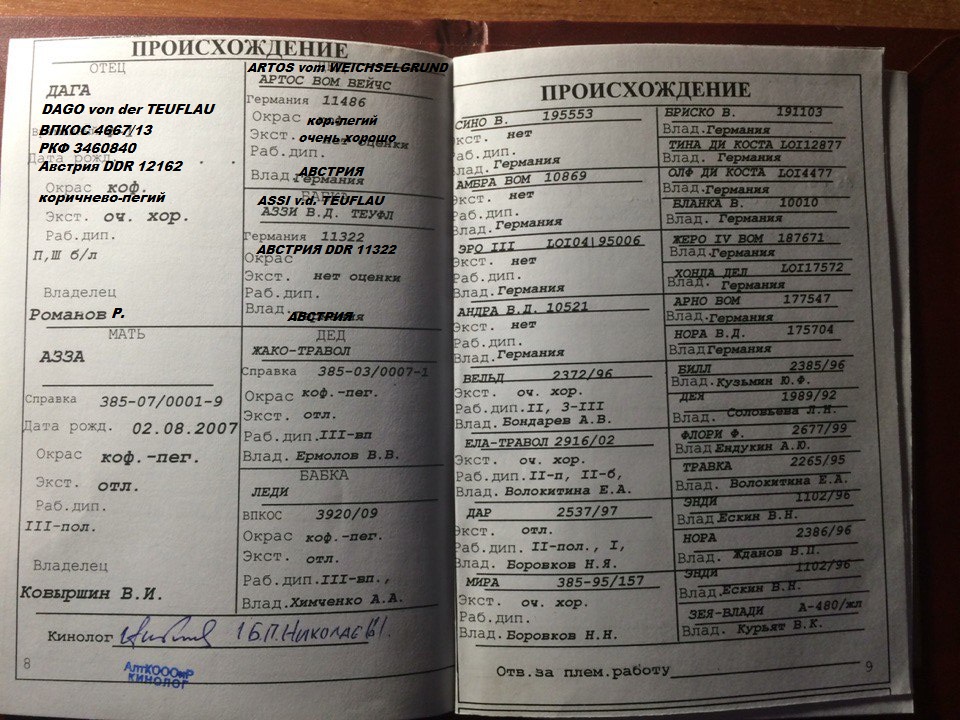 ПРОИСХОЖДЕНИЕ
ОТЕЦ
ДАГА
DAGO von der TEUFLAU
ВПКОС 4667/13
РКФ 3460840
Дата рожд.
Австрия DDR 12162
Окрас коф.
коричнево-пегий
Экст. оч. хор.
Раб.дип.
П,Ш б/л
Владелец
Романов Р.
МАТЬ
АЗЗА
Справка 385-07/0001-9
Дата рожд. 02.08.2007
Окрас коф.-пег.
Экст. отл.
Раб.дип.
III-пол.
Владелец
Ковыршин В.И.
ARTOS vom WEICHSELGRUND
АРТОС ВОМ ВЕЙЧС
Германия 11486
Окрас кор.пегий
Экст. очень хорошо
нет оценки
Раб.дип.
АВСТРИЯ
Влад.Германия
БАБКА
ASSI v.d. TEUFLAU
АЗЗИ В.Д. ТЕУФЛ
Германия 11322
АВСТРИЯ DDR 11322
Окрас
Экст. нет оценки
Раб.дип.
Влад. АВСТРИЯ
ДЕД
ЖАКО-ТРАВОЛ
Справка 385-03/0007-1
Окрас коф.-пег.
Экст. отл.
Раб.дип.III-вп
Влад. Ермолов В.В.
БАБКА
ЛЕДИ
ВПКОС 3920/09
Окрас коф.-пег.
Экст. отл.
Раб.дип.III-вп.,
Влад.Химченко А.А.
Кинолог Б.П.Николаев
АлтКОООиР
КИНОЛОГ
8
ПРОИСХОЖДЕНИЕ
СИНО В. 195553
Экст. нет
Раб.дип.
Влад.Германия
АМБРА ВОМ 10869
Экст. нет
Раб.дип.
Влад.Германия
ЭРО III LOI04|95006
Экст. нет
Раб.дип.
Влад.Германия
АНДРА В.Д. 10521
Экст. нет
Раб.дип.
Влад.Германия
ВЕЛЬД 2372/96
Экст. оч. хор.
Раб.дип.II, 3-III
Влад. Бондарев А.В.
ЕЛА-ТРАВОЛ 2916/02
Экст. оч. хор.
Раб.дип.II-п, II-б,
Влад. Волокитина Е.А.
ДАР 2537/97
Экст. отл.
Раб.дип. II-пол., I,
Влад. Боровков Н.Я.
МИРА 385-95/157
Экст. оч. хор.
Раб.дип.
Влад. Боровков Н.Н.
БРИСКО В. 191103
Влад.Германия
ТИНА ДИ КОСТА LOI12877
Влад.Германия
ОЛФ ДИ КОСТА LOI4477
Влад.Германия
БЛАНКА В. 10010
Влад.Германия
ЖЕРО IV ВОМ 187671
Влад.Германия
ХОНДА ДЕЛ LOI17572
Влад.Германия
АРНО ВОМ 177547
Влад.Германия
НОРА В.Д. 175704
Влад Германия
БИЛЛ 2385/96
Влад.Кузьмин Ю.Ф.
ДЕЯ 1989/92
Влад. Соловьева Л.Н.
ФЛОРИ Ф. 2677/99
Влад Ендукин А.Ю.
ТРАВКА 2265/95
Влад. Волокитина Е.А.
ЭНДИ 1102/96
Влад.Ескин В.Н.
НОРА 2386/96
Влад. Жданов В.П.
ЭНДИ 1102/96
Влад.Ескин В.Н.
ЗЕЯ-ВЛАДИ А-480/жл
Влад. Курьят В.К.
Отв.за плем.работу
9